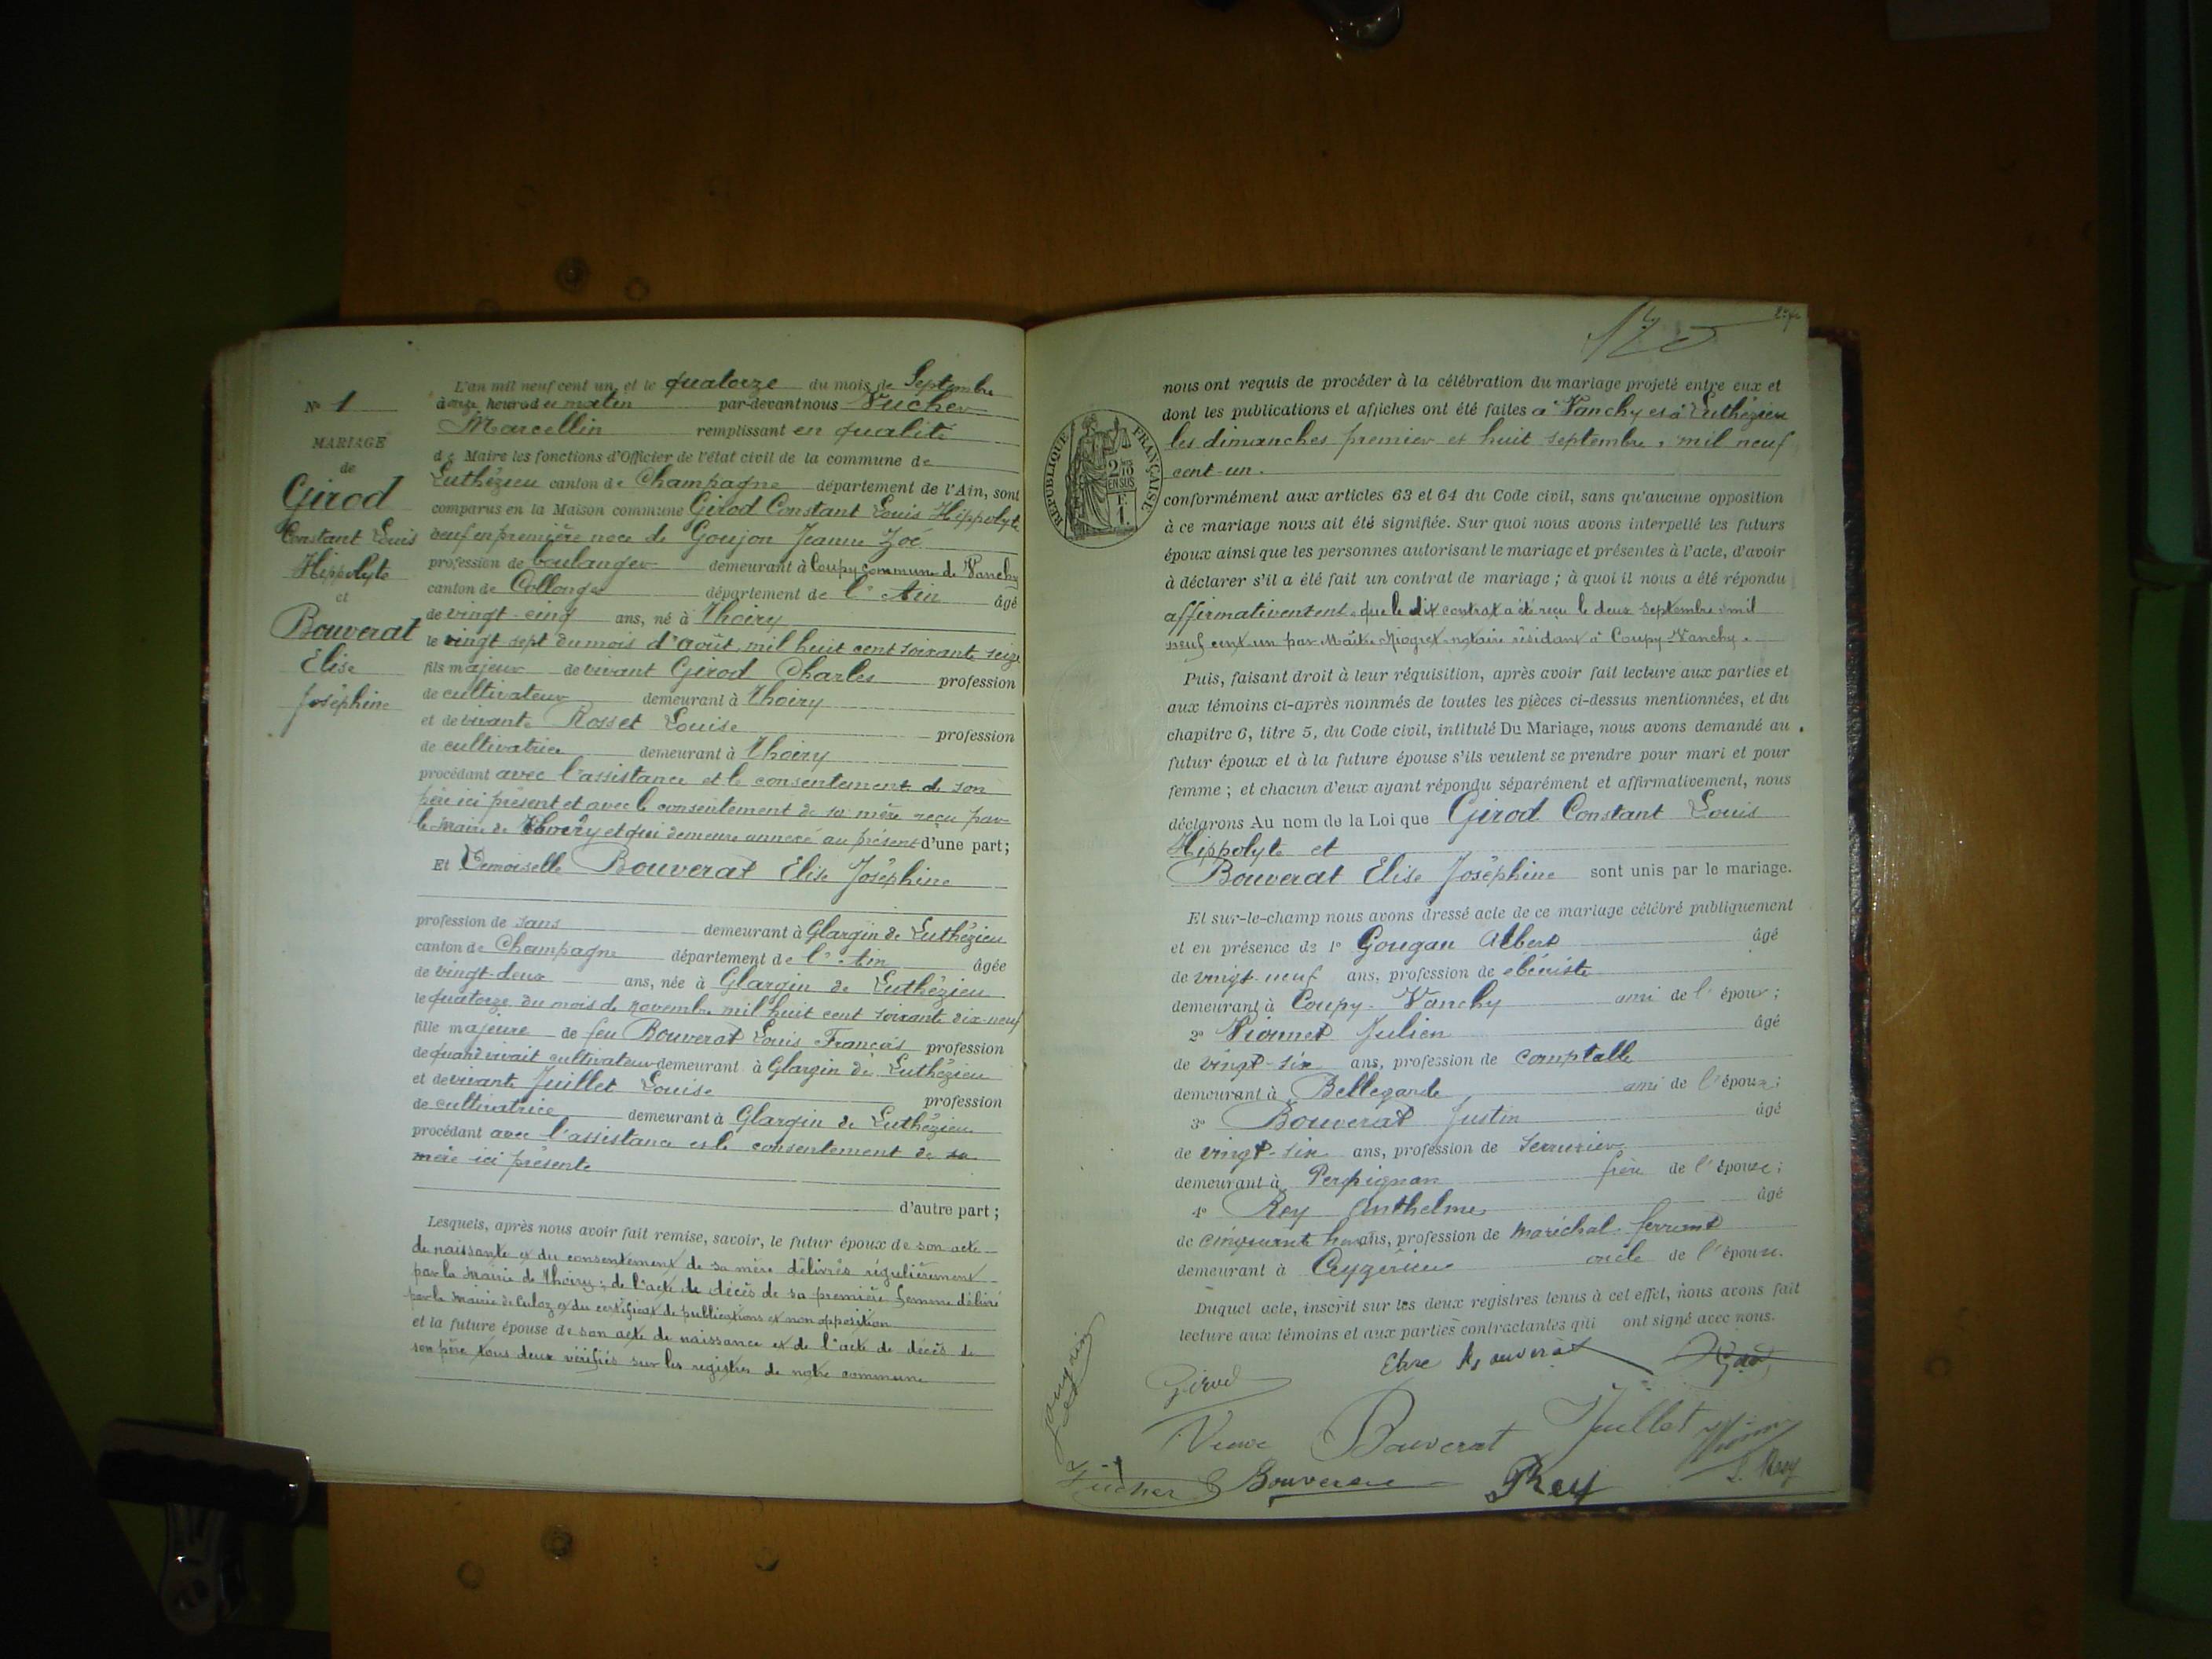 N° 1
MARIAGE
de
Girod
Constant Louis
Hippolyte
et
Bouverat
Elise
Joséphine
L'an mil neuf cent un et le quatorze du mois de Septembre
à onze heures du matin par-devant nous Vucher
Marcellin remplissant en qualité
de Maire les fonctions d'Officier de l'état civil de la commune de
Luthézieu canton de Champagne département de l'Ain, sont
comparus en la Maison commune Girod Constant Louis Hippolyte
veuf en première noce de Goujon Jeanne Zoé
profession de boulanger demeurant à Coupy commune de Vanchy
canton de Collonges département de l'Ain âgé
de vingt-cinq ans, né à Thoiry
le vingt sept du mois d'août mil huit cent soixante seize
fils majeur de vivant Girod Charles profession
de cultivateur demeurant à Thoiry
et de vivante Rosset Louise profession
de cultivatrice demeurant à Thoiry
procédant avec l'assistance et le consentement de son
père ici présent et avec le consentement de sa mère reçu par
le maire de Thoiry et qui demeure annexé au présent d'une part;
Et Demoiselle Bouverat Elise Joséphine
profession de sans demeurant à Glargin de Luthézieu
canton de Champagne département de l'Ain âgée
de vingt-deux ans, née à Glargin de Luthézieu
le quatorze du mois de novembre mil huit cent soixante dix-neuf
fille majeure de feu Bouverat Louis François profession
de quand vivait cultivateur demeurant à Glargin de Luthézieu
et de vivante Juillet Louise profession
de cultivatrice demeurant à Glargin de Luthézieu
procédant avec l'assistance et le consentement de sa
mère ici présente
d'autre part;
Lesquels, après nous avoir fait remise, savoir, le futur époux de son acte
de naissante et du consentement de sa mère délivrés régulièrement
par la mairie de Thoiry; de l'acte de décès de sa première femme délivré
par la mairie de Culoz et du certificat de publications et non opposition
et la future épouse de son acte de naissance et de l'acte de décès de
son père tous deux vérifiés sur les registres de notre commune
RÉPUBLIQUE FRANÇAISE
2/10
EN SUS
F.
1.
nous ont requis de procéder à la célébration du mariage projeté entre eux et
dont les publications et affiches ont été faites à Vanchy et à Luthézieu
les dimanches premier et huit septembre, mil neuf
cent-un.
conformément aux articles 63 et 64 du Code civil, sans qu'aucune opposition
à ce mariage nous ait été signifiée. Sur quoi nous avons interpellé les futurs
époux ainsi que les personnes autorisant le mariage et présentes à l'acte, d'avoir
à déclarer s'il a été fait un contrat de mariage; à quoi il nous a été répondu
affirmativement que le dit contrat a été reçu le deux septembre mil
neuf cent-un par Maître notaire résidant à Coupy-Vanchy.
Puis, faisant droit à leur réquisition, après avoir fait lecture aux parties et
aux témoins ci-après nommés de toutes les pièces ci-dessus mentionnées, et du
chapitre 6, titre 5, du Code civil, intitulé Du Mariage, nous avons demandé au
futur époux et à la future épouse s'ils veulent se prendre pour mari et pour
femme; et chacun d'eux ayant répondu séparément et affirmativement, nous
déclarons Au nom de la Loi que Girod Constant Louis
Hippolyte et
Bouverat Elise Joséphine sont unis par le mariage.
Et sur-le-champ nous avons dressé acte de ce mariage célébré publiquement
et en présence de 1° Gougan Albert âgé
de vingt-neuf ans, profession de ébéniste
demeurant à Coupy-Vanchy ami de l'époux;
2° Vionnet Julien âgé
de vingt-six ans, profession de comptable
demeurant à Bellegarde ami de l'époux;
3° Bouverat Justin âgé
de vingt-six ans, profession de serrurier
demeurant à Perpignan frère de l'épouse;
4° Rey Anthelme âgé
de cinquante huit ans, profession de maréchal ferrant
demeurant à Ceyzérieu oncle de l'épouse.
Duquel acte, inscrit sur les deux registres tenus à cet effet, nous avons fait
lecture aux témoins et aux parties contractantes qui ont signé avec nous.
Girod Elise Bouverat
Veuve Bouverat Juillet
Vucher Bouverat Rey L. Rey